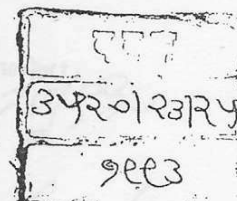 ३५२०|२३|२५
१९९३